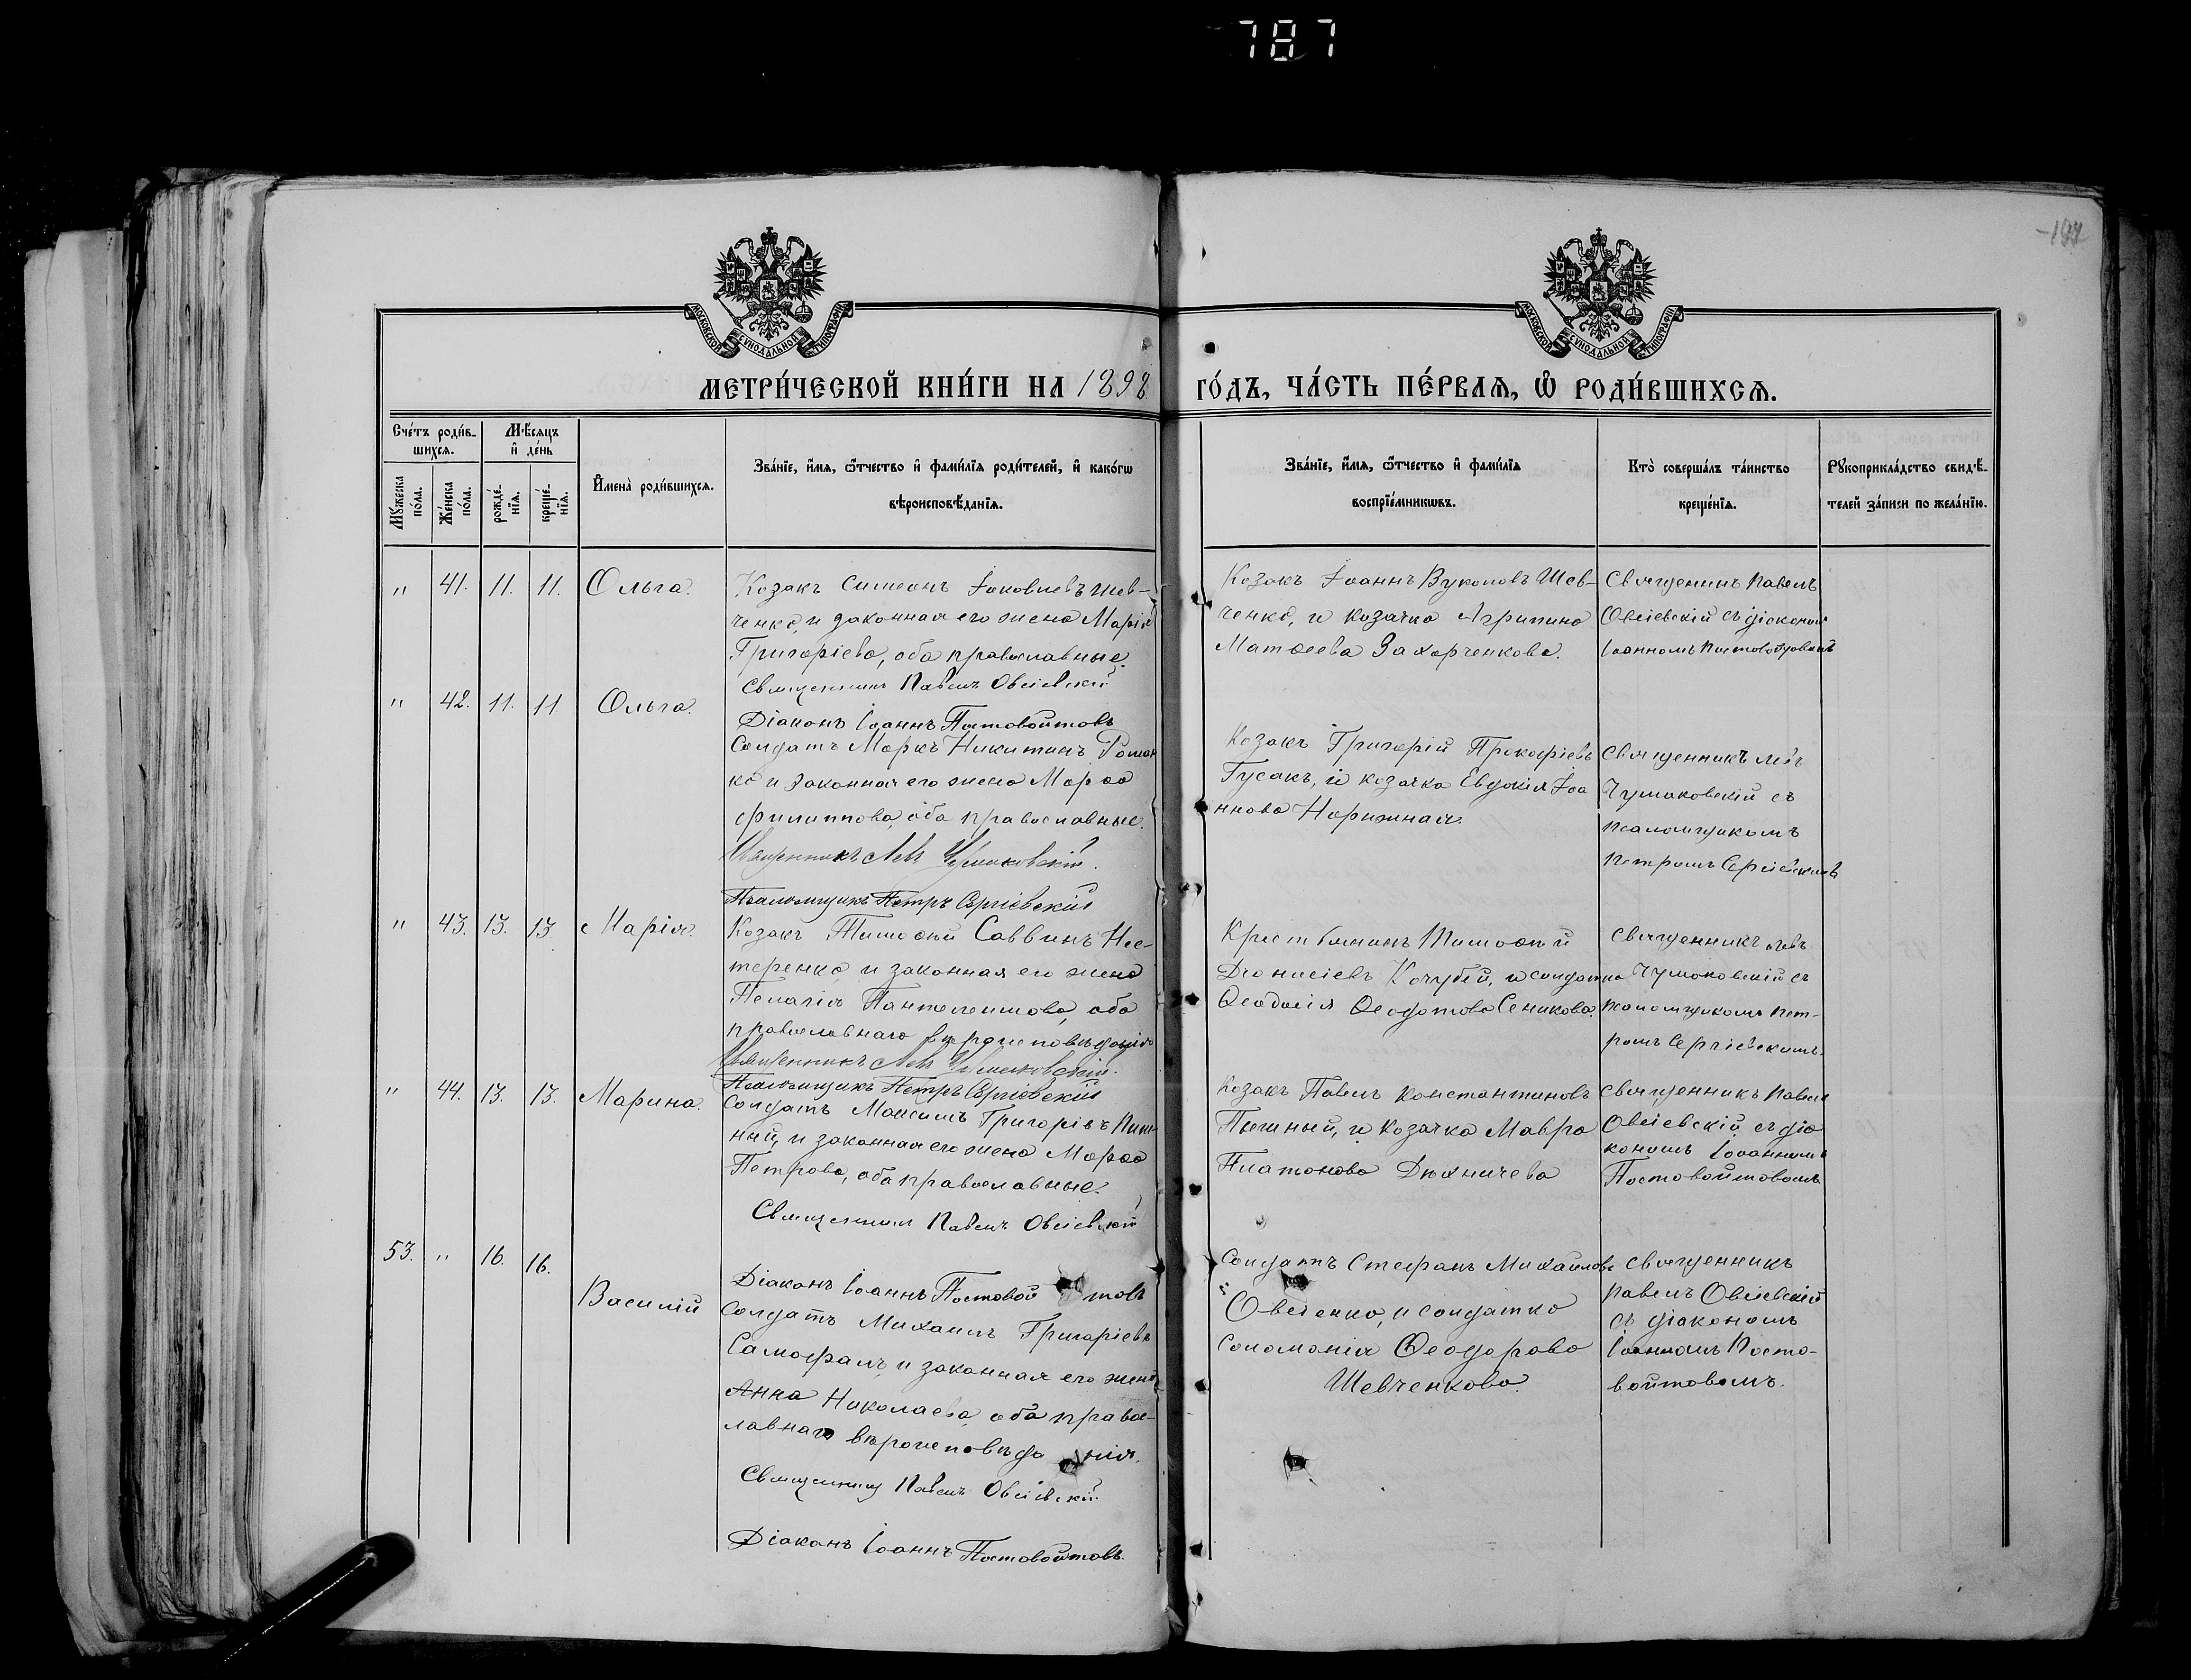 787
-197
МОСКОВСКОЙ СѴНОДАЛЬНОЙ ТИПОГРАФІИ
МОСКОВСКОЙ СѴНОДАЛЬНОЙ ТИПОГРАФІИ
МЕТРИ́ЧЕСКОЙ КНИ́ГИ НА 1898
ГО́ДЪ, ЧА́СТЬ ПЕ́РВАѦ, Ѿ РОДИ́ВШИХСѦ.
Сче́тъ роди́в-
шихсѧ.
Мѣ́сѧцъ
и҆ де́нь
Мꙋ́жеска по́ла.
Же́нска по́ла.
рожде́-нїѧ.
креще́-нїѧ.
И҆мена̀ роди́вшихсѧ.
Зва́нїе, и҆́мѧ, ѻ҆́тчество и҆ фами́лїѧ роди́телей, и҆ како́гѡ
вѣроисповѣ́данїѧ.
Зва́нїе, и҆́мѧ, ѻ҆́тчество и҆ фами́лїѧ
воспрїе́мникѡвъ.
Кто̀ соверша́лъ та́инство
креще́нїѧ.
Рꙋкоприкла́дство свидѣ́-
телей за́писи по жела́нїю.
" 41. 11. 11. Ольга.
Козакъ Симеонъ Іаковлевъ Шев-
ченко, и законная его жена Марія
Григоріева, оба православные.
Священникъ Павелъ Овсіевскій
Діаконъ Іоаннъ Постовойтовъ
Козакъ Іоаннъ Вуколовъ Шев-
ченко, и козачка Агрипина
Матѳеева Захорченкова.
Священикъ Павелъ
Овсіевскій съ діакономъ
Іоанномъ Постовойтовымъ
" 42. 11. 11 Ольга.
Солдатъ Маркъ Никитинъ Роман
ко и законная его жена Марѳа
Филиппова, оба православные.
Священникъ Левъ Чумаковскій.
Псаломщикъ Петръ Сергіевскій
Козакъ Григорій Прокофіевъ
Гусакъ, и козачка Евдокія Іоа
ннова Норижная.
Священникъ Левъ
Чумаковскій съ
псаломщикомъ
Петромъ Сергіевскимъ
" 43. 13. 13 Марія.
Козакъ Тимоѳей Саввинъ Нес-
теренко, и законная его жена
Пелагія Пантелеимова, оба
православнаго вѣроисповѣданія
Священникъ Левъ Чумаковскій.
Псаломщикъ Петръ Сергіевскій
Крестьянинъ Тимоѳей
Діонисіевъ Кочубей, и солдатка
Ѳеодосія Ѳеодотова Сеникова.
Священникъ Левъ
Чумаковскій съ
псаломщикомъ Пет-
ромъ Сергіевскимъ.
" 44. 13. 13. Марина.
Солдатъ Максимъ Григоріевъ Пиш-
ный, и законная его жена Марѳа
Петрова, оба православные.
Священникъ Павелъ Овсіевскій
Діаконъ Іоаннъ Постовойтовъ
Козакъ Павелъ Константиновъ
Пышный, и козачка Мавра
Платонова Дюхничева
Священникъ Павелъ
Овсіевскій съ діа
кономъ Іоанномъ
Постовойтовымъ
53. " 16. 16. Василій
Солдатъ Михаилъ Григоріевъ
Самофалъ, и законная его жена
Анна Николаева, оба правос-
лавнаго вѣроисповѣданія.
Священникъ Павелъ Овсіевскій
Діаконъ Іоаннъ Постовойтовъ.
Солдатъ Стефанъ Михайловъ
Овсіенко, и солдатка
Соломонія Ѳеодорова
Шевченкова.
Священникъ
Павелъ Овсіевскій
съ діакономъ
Іоанномъ Посто-
войтовымъ.